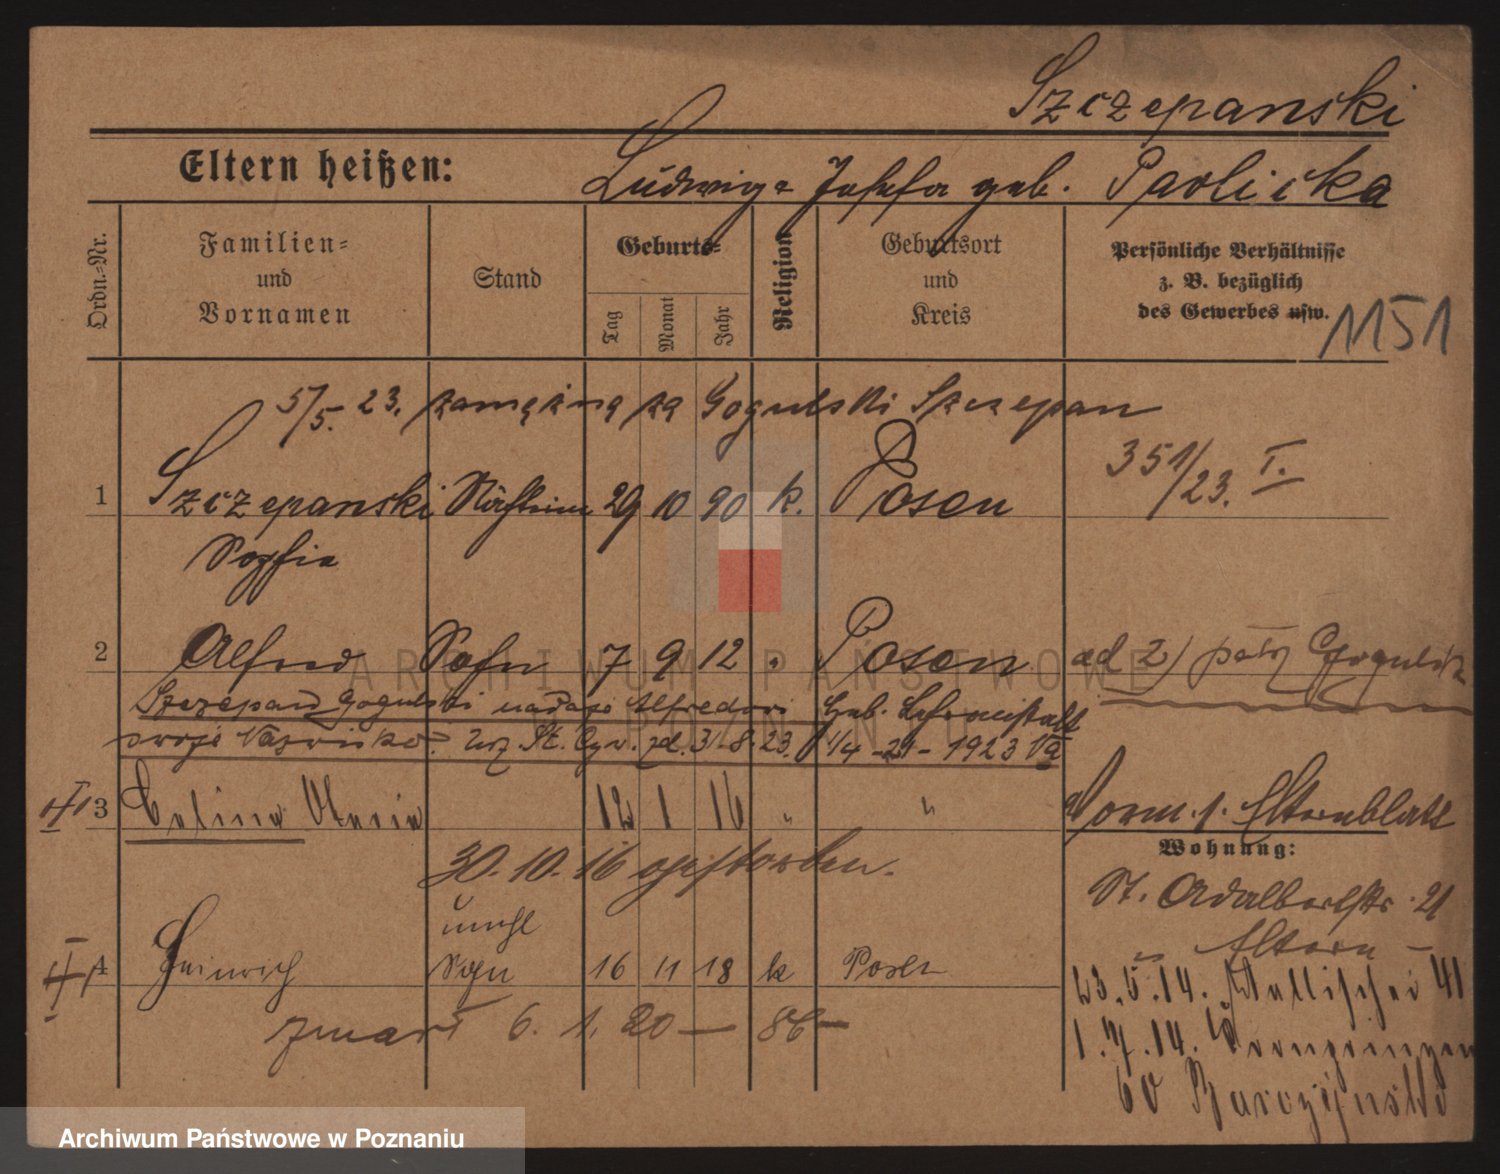 Szczepanski
Eltern heißen: Ludwig u Josefa geb. Pavlicka
Ordn.-Nr.
Familien- und Vornamen
Stand
Geburts-
Tag
Monat
Jahr
Religion
Geburtsort und Kreis
Persönliche Verhältnisse
z. B. bezüglich
des Gewerbes usw.
1151
5/5. 23. zamężna za Gogulski Szczepan
351/23. I.
1 Szczepanski 29 10 90 k. Posen
Sophie
2 Alfred Sohn 7 9 12 Posen
ad 2)
Szczepan Gogulski nadaje Alfredowi
swoje Nazwisko. Urz. St. Cyw. zd. 31.8.23.
1/4 - 29 - 1923
3 Celina Maria 12 1 16 "
30.10.16 gestorben.
Norm. 1. Elternblatt
Wohnung:
St. Adalbertstr. 21
Eltern
unehl
4 Heinrich Sohn 16 11 18 k Posen
zmarł 6. 1. 20 - 86 -
23.5.14. Wallischei 41
1.7.14.
60
ARCHIWUM PAŃSTWOWE
W POZNANIU
Archiwum Państwowe w Poznaniu